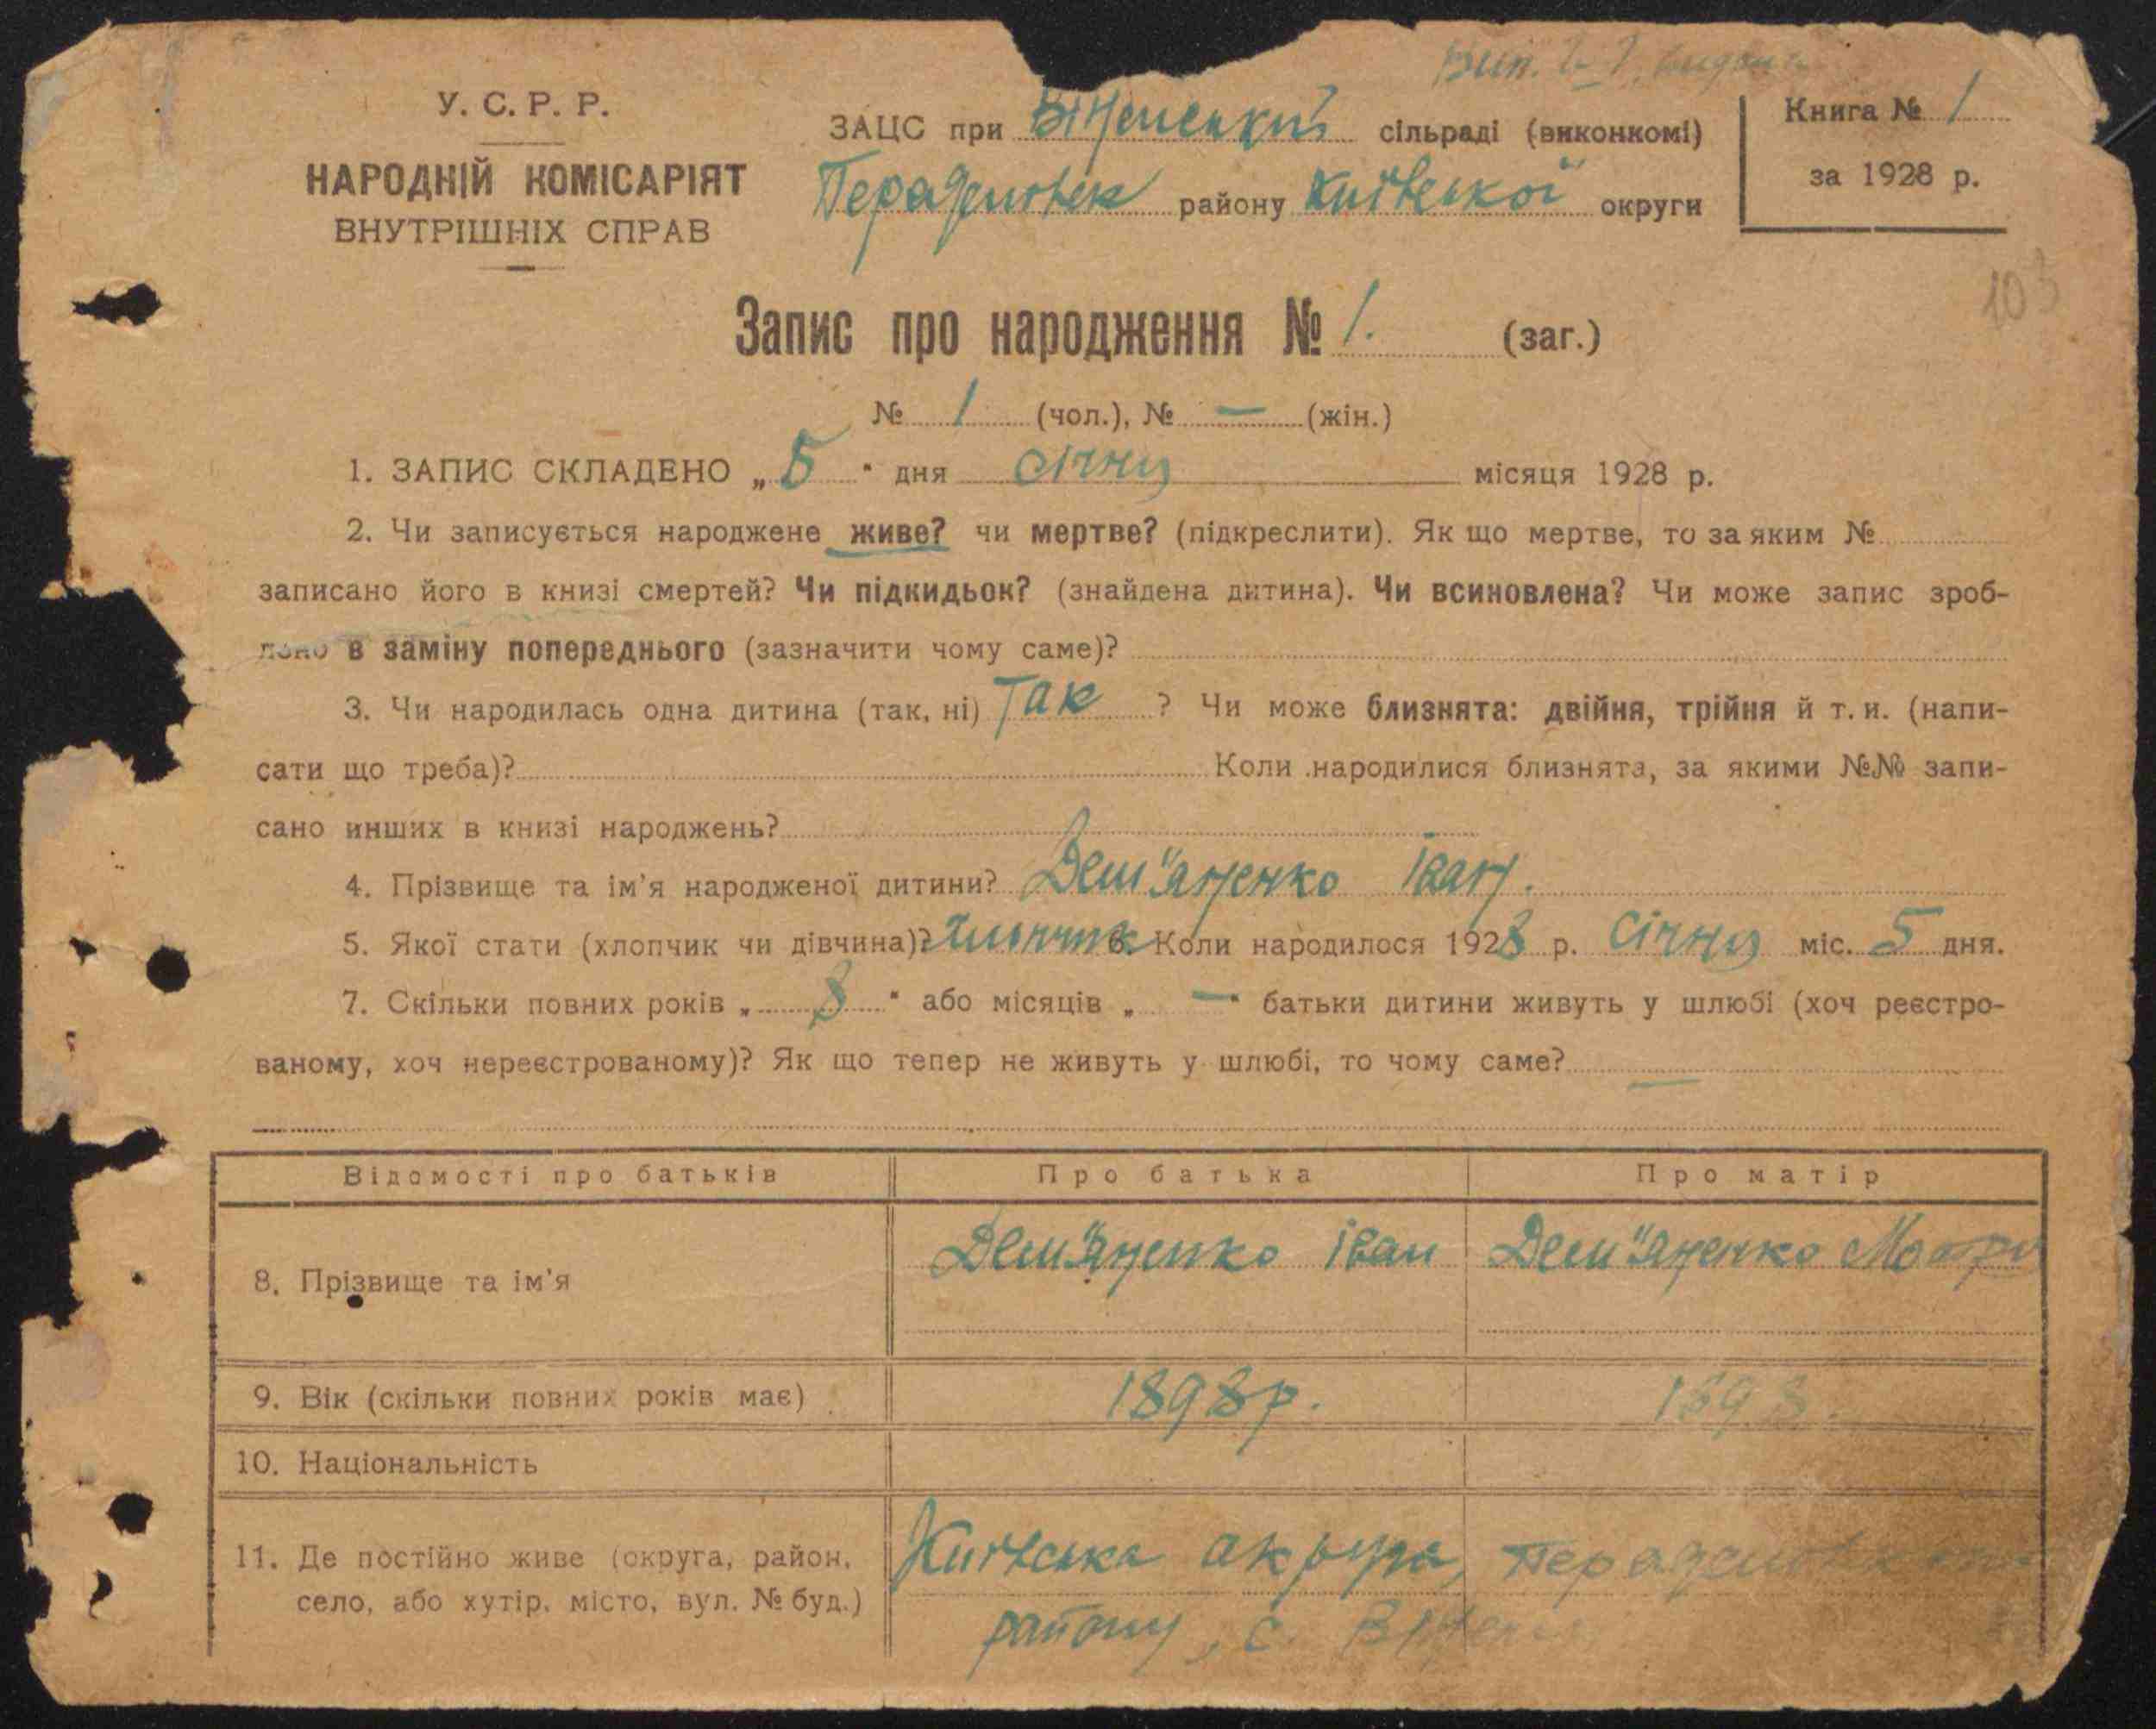 У. С. Р. Р.
НАРОДНІЙ КОМІСАРІЯТ
ВНУТРІШНІХ СПРАВ
ЗАЦС при сільраді (виконкомі)
району Київської округи
Книга № 1
за 1928 р.
103
Запис про народження № 1. (заг.)
№ 1 (чол.), № — (жін.)
1. ЗАПИС СКЛАДЕНО „ 5 " дня січня місяця 1928 р.
2. Чи записується народжене живе? чи мертве? (підкреслити). Як що мертве, то за яким №
записано його в книзі смертей? Чи підкидьок? (знайдена дитина). Чи всиновлена? Чи може запис зроб-
лено в заміну попереднього (зазначити чому саме)?
3. Чи народилась одна дитина (так, ні) Так ? Чи може близнята: двійня, трійня й т. и. (напи-
сати що треба)? Коли народилися близнята, за якими №№ запи-
сано инших в книзі народжень?
4. Прізвище та ім'я народженої дитини? Дем'яненко Іван.
5. Якої стати (хлопчик чи дівчина)? Хлопчик 6. Коли народилося 1928 р. Січня міс. 5 дня.
7. Скільки повних років „ 8 " або місяців „ — " батьки дитини живуть у шлюбі (хоч реєстро-
ваному, хоч нереєстрованому)? Як що тепер не живуть у шлюбі, то чому саме? —
Відомості про батьків Про батька Про матір
8. Прізвище та ім'я Дем'яненко Іван Дем'яненко Мотря
9. Вік (скільки повних років має) 1898 р. 1898.
10. Національність
11. Де постійно живе (округа, район, Київська округа,
село, або хутір, місто, вул. № буд.) району, с.